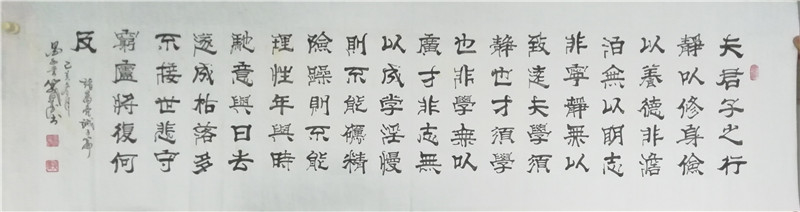 夫君子之行
靜以修身儉
以養德非澹
泊無以明志
非寧靜無以
致遠夫學須
靜也才須學
也非學無以
廣才非志無
以成学淫慢
則不能礪精
險躁則不能
理性年與時
馳意與日去
遂成枯落多
不接世悲守
窮盧將復何
及
諸葛亮誡子篇